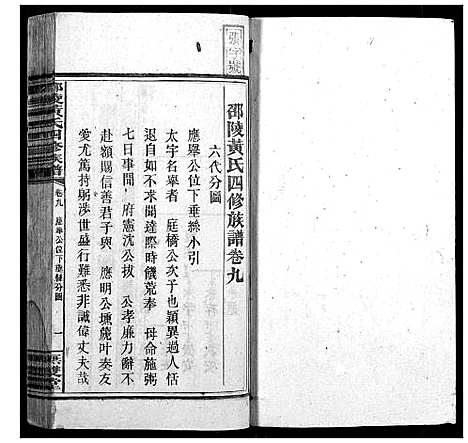 張字號
邵陵黃氏四修族譜卷九
六代分圖
應舉公位下垂絲小引
太字名舉者 庭橋公次子也穎異過人恬
退自如不求聞達際時饑荒奉 母命施粥
七日動人欽羡時 府憲沈公拔 公孝廉力辭不
赴額賜信善君子與 應明公塤箎叶奏友
愛尤篤持躬涉世盛行難悉非誠偉丈夫哉
邵陵黃氏四修族譜
卷九 應舉公位下垂絲分圖 一